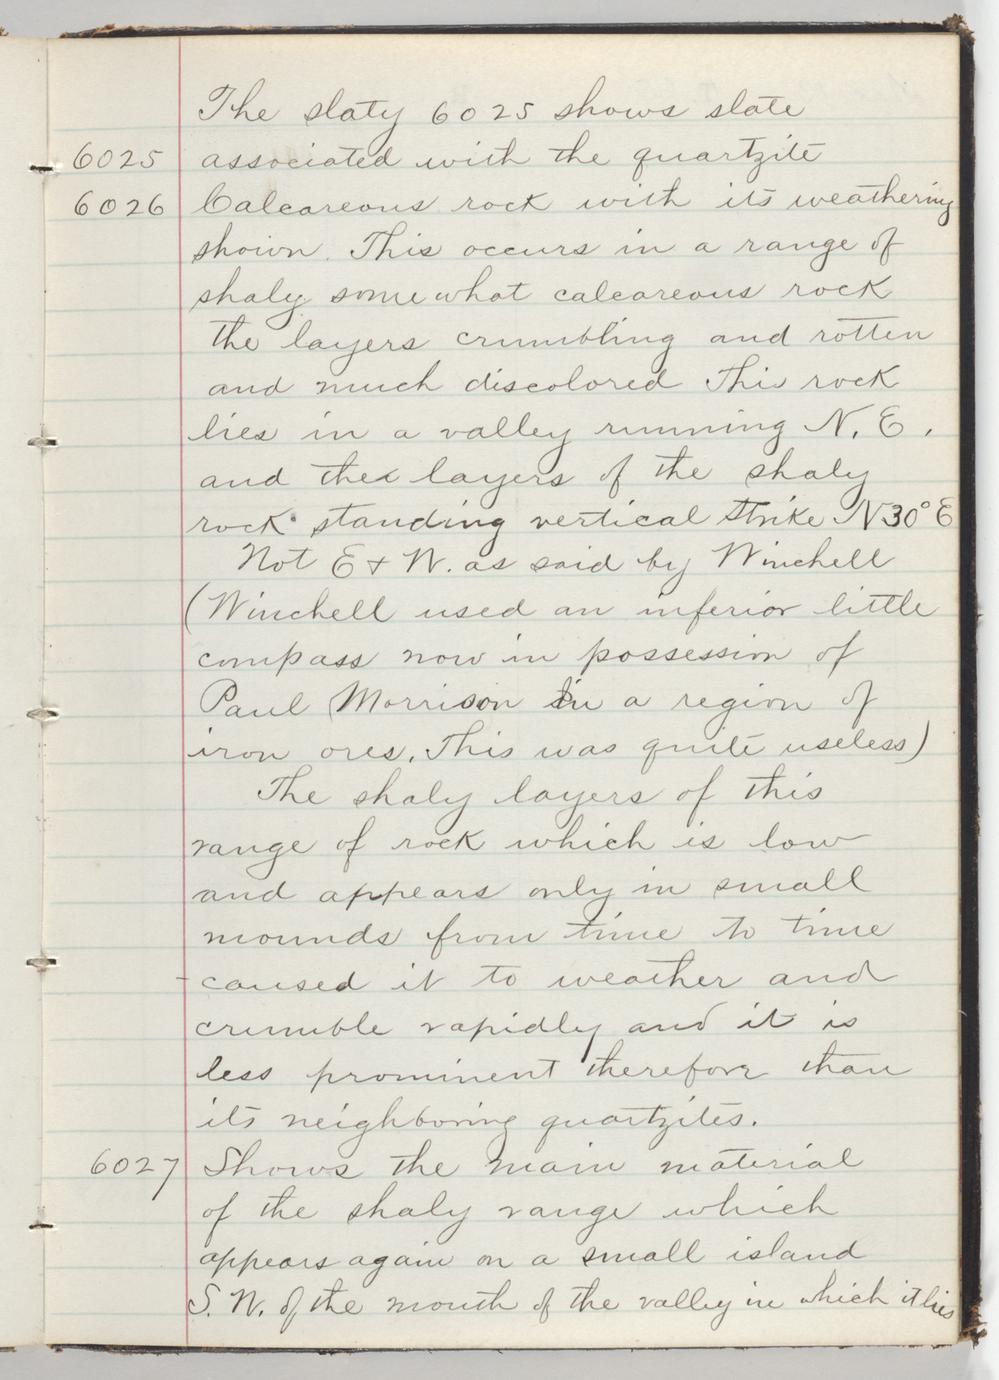 The slaty 6025 shows slate
6025 associated with the quartzite
6026 Calcareous rock with its weathering
shown. This occurs in a range of
shaly somewhat calcareous rock
the layers crumbling and rotten
and much discolored This rock
lies in a valley running N. E.
and the layers of the shaly
rock standing vertical Strike N30°E
Not E + W. as said by Winchell
(Winchell used an inferior little
compass now in possession of
Paul Morrison in a region of
iron ores. This was quite useless)
The shaly layers of this
range of rock which is low
and appears only in small
mounds from time to time
caused it to weather and
crumble rapidly and it is
less prominent therefore than
its neighboring quartzites.
6027 Shows the main material
of the shaly range which
appears again on a small island
S. W. of the mouth of the valley in which it lies